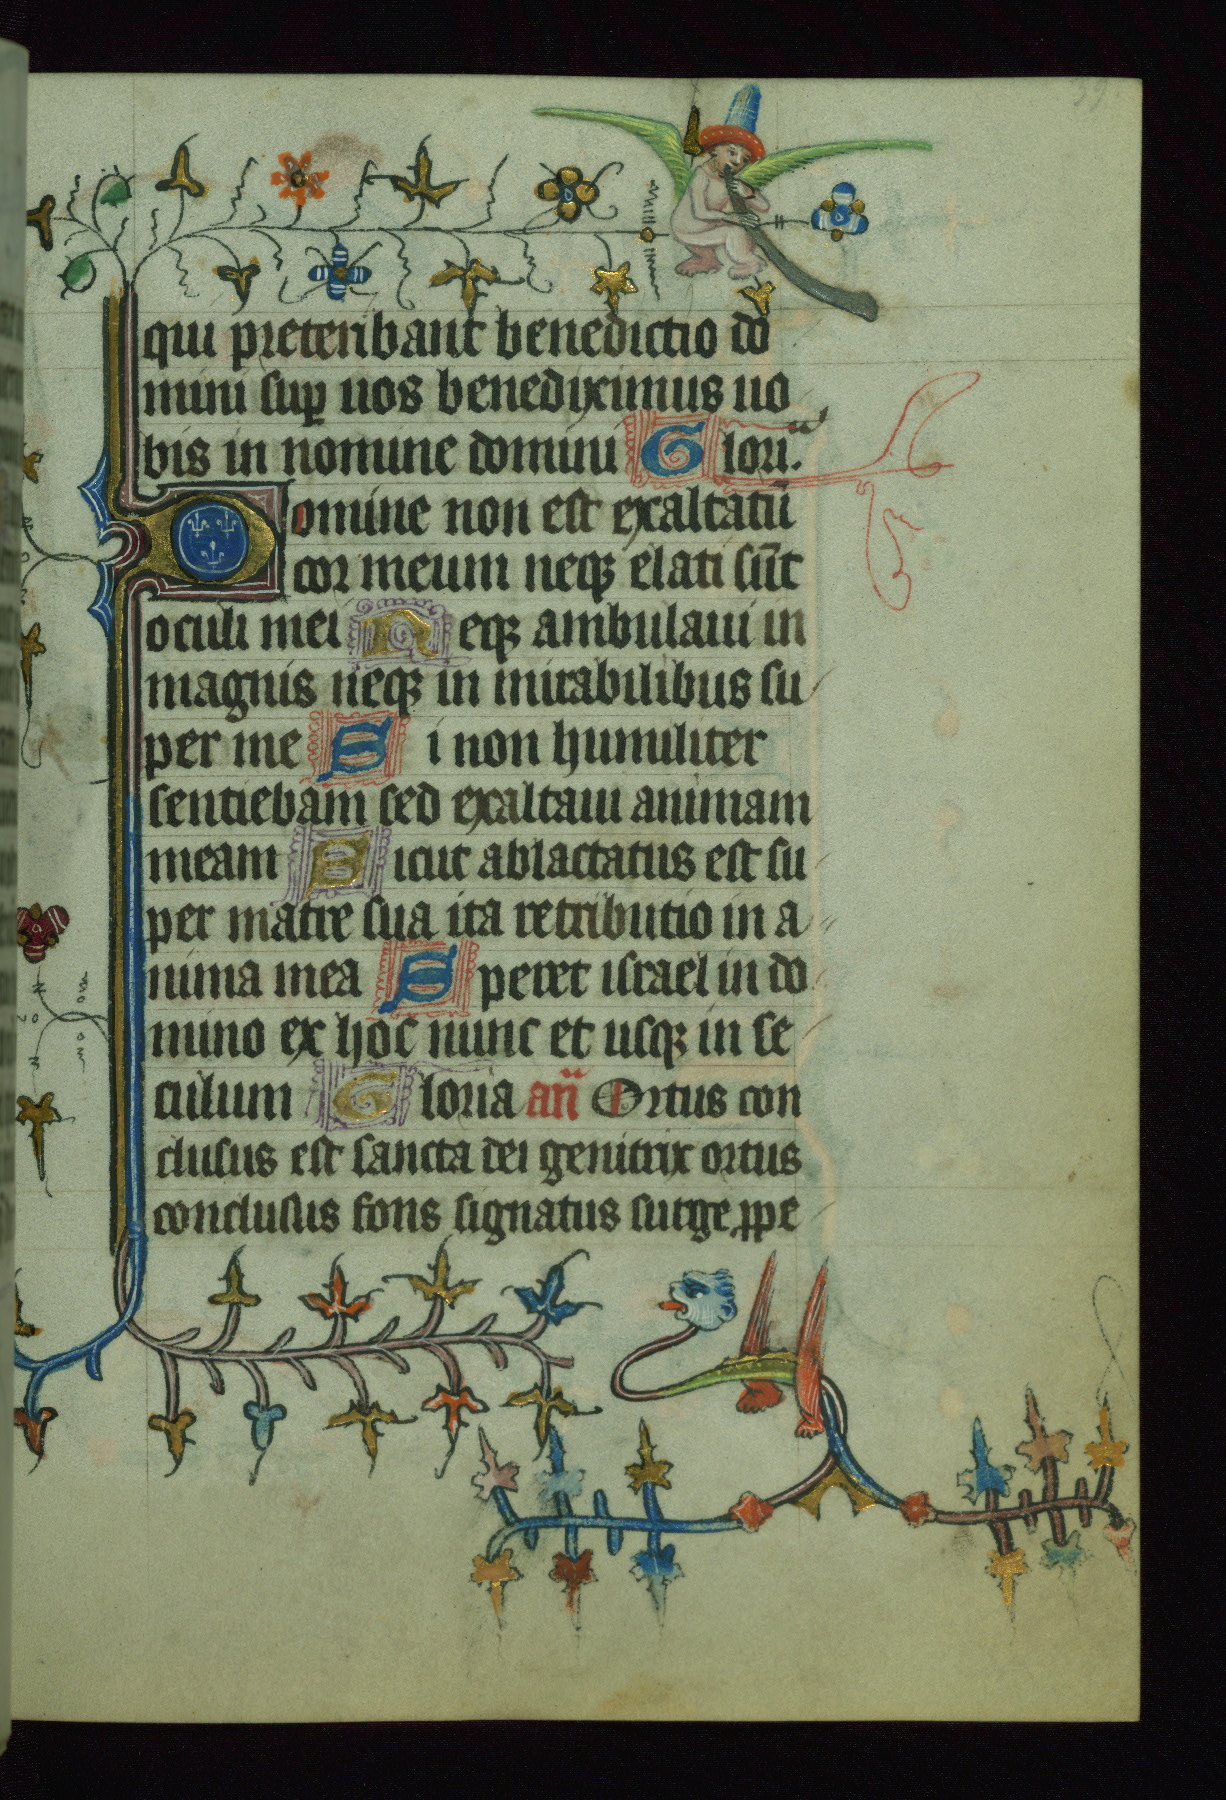 qui preteribant benedictio do
mini sup uos benediximus uo
bis in nomine domini Glori.a
Domine non est exaltatū
cor meum neqꝫ elati sūt
oculi mei Neqꝫ ambulaui in
magnis neqꝫ in mirabilibus su
per me Si non humiliter
sentiebam sed exaltaui animam
meam Sicut ablactatus est su
per matre sua ita retributio in a
nima mea Speret israel in do
mino ex hoc nunc et usqꝫ in se
culum Gloria añ Ortus con
clusus est sancta dei genitrix ortus
conclusus fons signatus surge ꝓpe